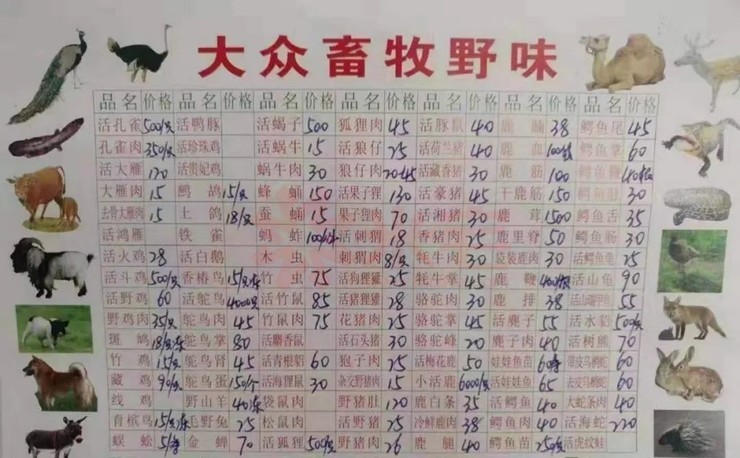 大众畜牧野味
品名 价格 品名 价格 品名 价格 品名 价格 品名 价格 品名 价格 品名 价格
活孔雀 500/只 活鸭豚 活蝎子 500 狐狸肉 45 活豚鼠 40 鹿 38 鳄鱼尾 45
孔雀肉 350/只 活珍珠鸡 活蜗牛 15 活狼仔 25 活荷兰猪 40 鹿血 鳄鱼掌 60
活大雁 120 活贵妃鸡 蜗牛肉 30 狼仔肉 20-45 活藏香猪 30 鹿筋 100 鳄鱼
大雁肉 15 鹧鸪 15/只 蜂蛹 150 活果子狸 130 活豪猪 45 干鹿筋 150 鳄鱼肚 30
去骨大雁肉 15 土鸽 18/只 蚕蛹 15 果子狸肉 70 活湘猪 30 鹿茸 1500 鳄鱼舌 35
活鸿雁 铁雀 蚂蚱 活刺猬 18 香猪肉 25 鹿里脊 50 鳄鱼肠 30
活火鸡 28 活白鹅 木虫 刺猬肉 8/只 牦牛肉 30 袋装鹿肉 30 活鳄鱼龟 25
活斗鸡 500/只 香椿鸟 竹虫 75 活狗狸獾 25 牦牛掌 45 鹿鞭 活山龟 90
活野鸡 60 活鸵鸟 4000/只 活竹鼠 85 活猪狸獾 28 骆驼肉 30 鹿排 38 55
野鸡肉 35/只 鸵鸟肉 45 竹鼠肉 75 花猪肉 25 骆驼掌 45 活鹿子 55 活水貂 500/只
斑鸠 鸵鸟掌 80 活麝香鼠 活石头猪 30 骆驼峰 20 鹿子肉 40 活树熊 70
竹鸡 15/只 鸵鸟肾 45 活青根貂 60 狍子肉 25 活梅花鹿 50 娃娃鱼苗 带皮乌梢蛇 60
藏鸡 90/只 鸵鸟蛋 150/个 活海狸鼠 30 杂交野猪肉 15 小活鹿 6000/只 活娃娃鱼 65 去皮乌梢蛇 60
线鸡 野山羊 袋鼠肉 野猪肚 120 鹿白条 35 活鳄鱼 40 大蛇条肉 40
青槟鸟 毛野兔 25 松鼠肉 活野猪 25 冷鲜鹿肉 38 鳄鱼肉 40 活海蛇 220
蜈蚣 金蝉 70 活狐狸 500/只 野猪肉 26 鹿腿 40 鳄鱼苗 活虎纹蛙